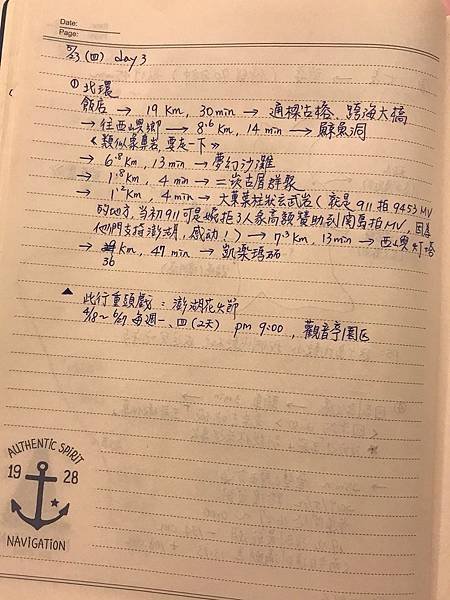 Date:
Page:
5/23 (四) day 3
① 北環
飯店 → 19 Km, 30 min → 通樑古榕、跨海大橋
→ 往西嶼鄉 → 8.6 Km, 14 min → 鯨魚洞
《類似象鼻岩，要走一下》
→ 6.8 Km, 13 min → 夢幻沙灘
→ 1.8 Km, 4 min → 二崁古厝群聚
→ 1.2 Km, 4 min → 大菓葉柱狀玄武岩（就是911拍9453 MV
的地方，當初911可是婉拒3人家高額贊助到南島拍MV，因為
他們支持澎湖，感動！）→ 7.3 Km, 13 min → 西嶼灯塔
→ 36 Km, 47 min → 凱樂瑪丽
▲ 此行重頭戲：澎湖花火節
4/18~6/27 每週一、四(2天) pm 9:00，觀音亭園區
AUTHENTIC SPIRIT
19 28
NAVIGATION